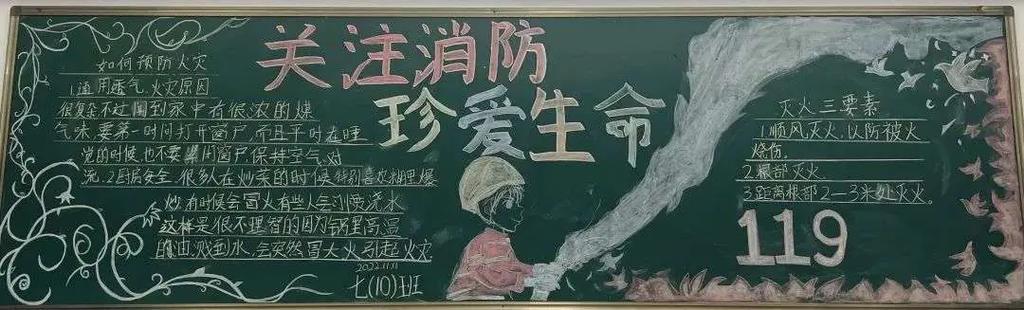 关注消防
珍爱生命
如何预防火灾
1.通用透气,火灾原因
很复杂不过闻到家中有很浓的煤
气味,要第一时间打开窗户,而且平时在睡
觉的时候,也不要闭窗户,保持空气对
流,2.厨房安全,很多人在炒菜的时候特别喜欢料理爆
炒,有时候会冒火有些人会浇水
这样是很不理智的因为锅里高温
的油,溅到水,会突然冒大火引起火灾
2022.11.11
七(10)班
灭火三要素
1.顺风灭火,以防被火
烧伤。
2.根部灭火。
3.距离根部2—3米处灭火。
119